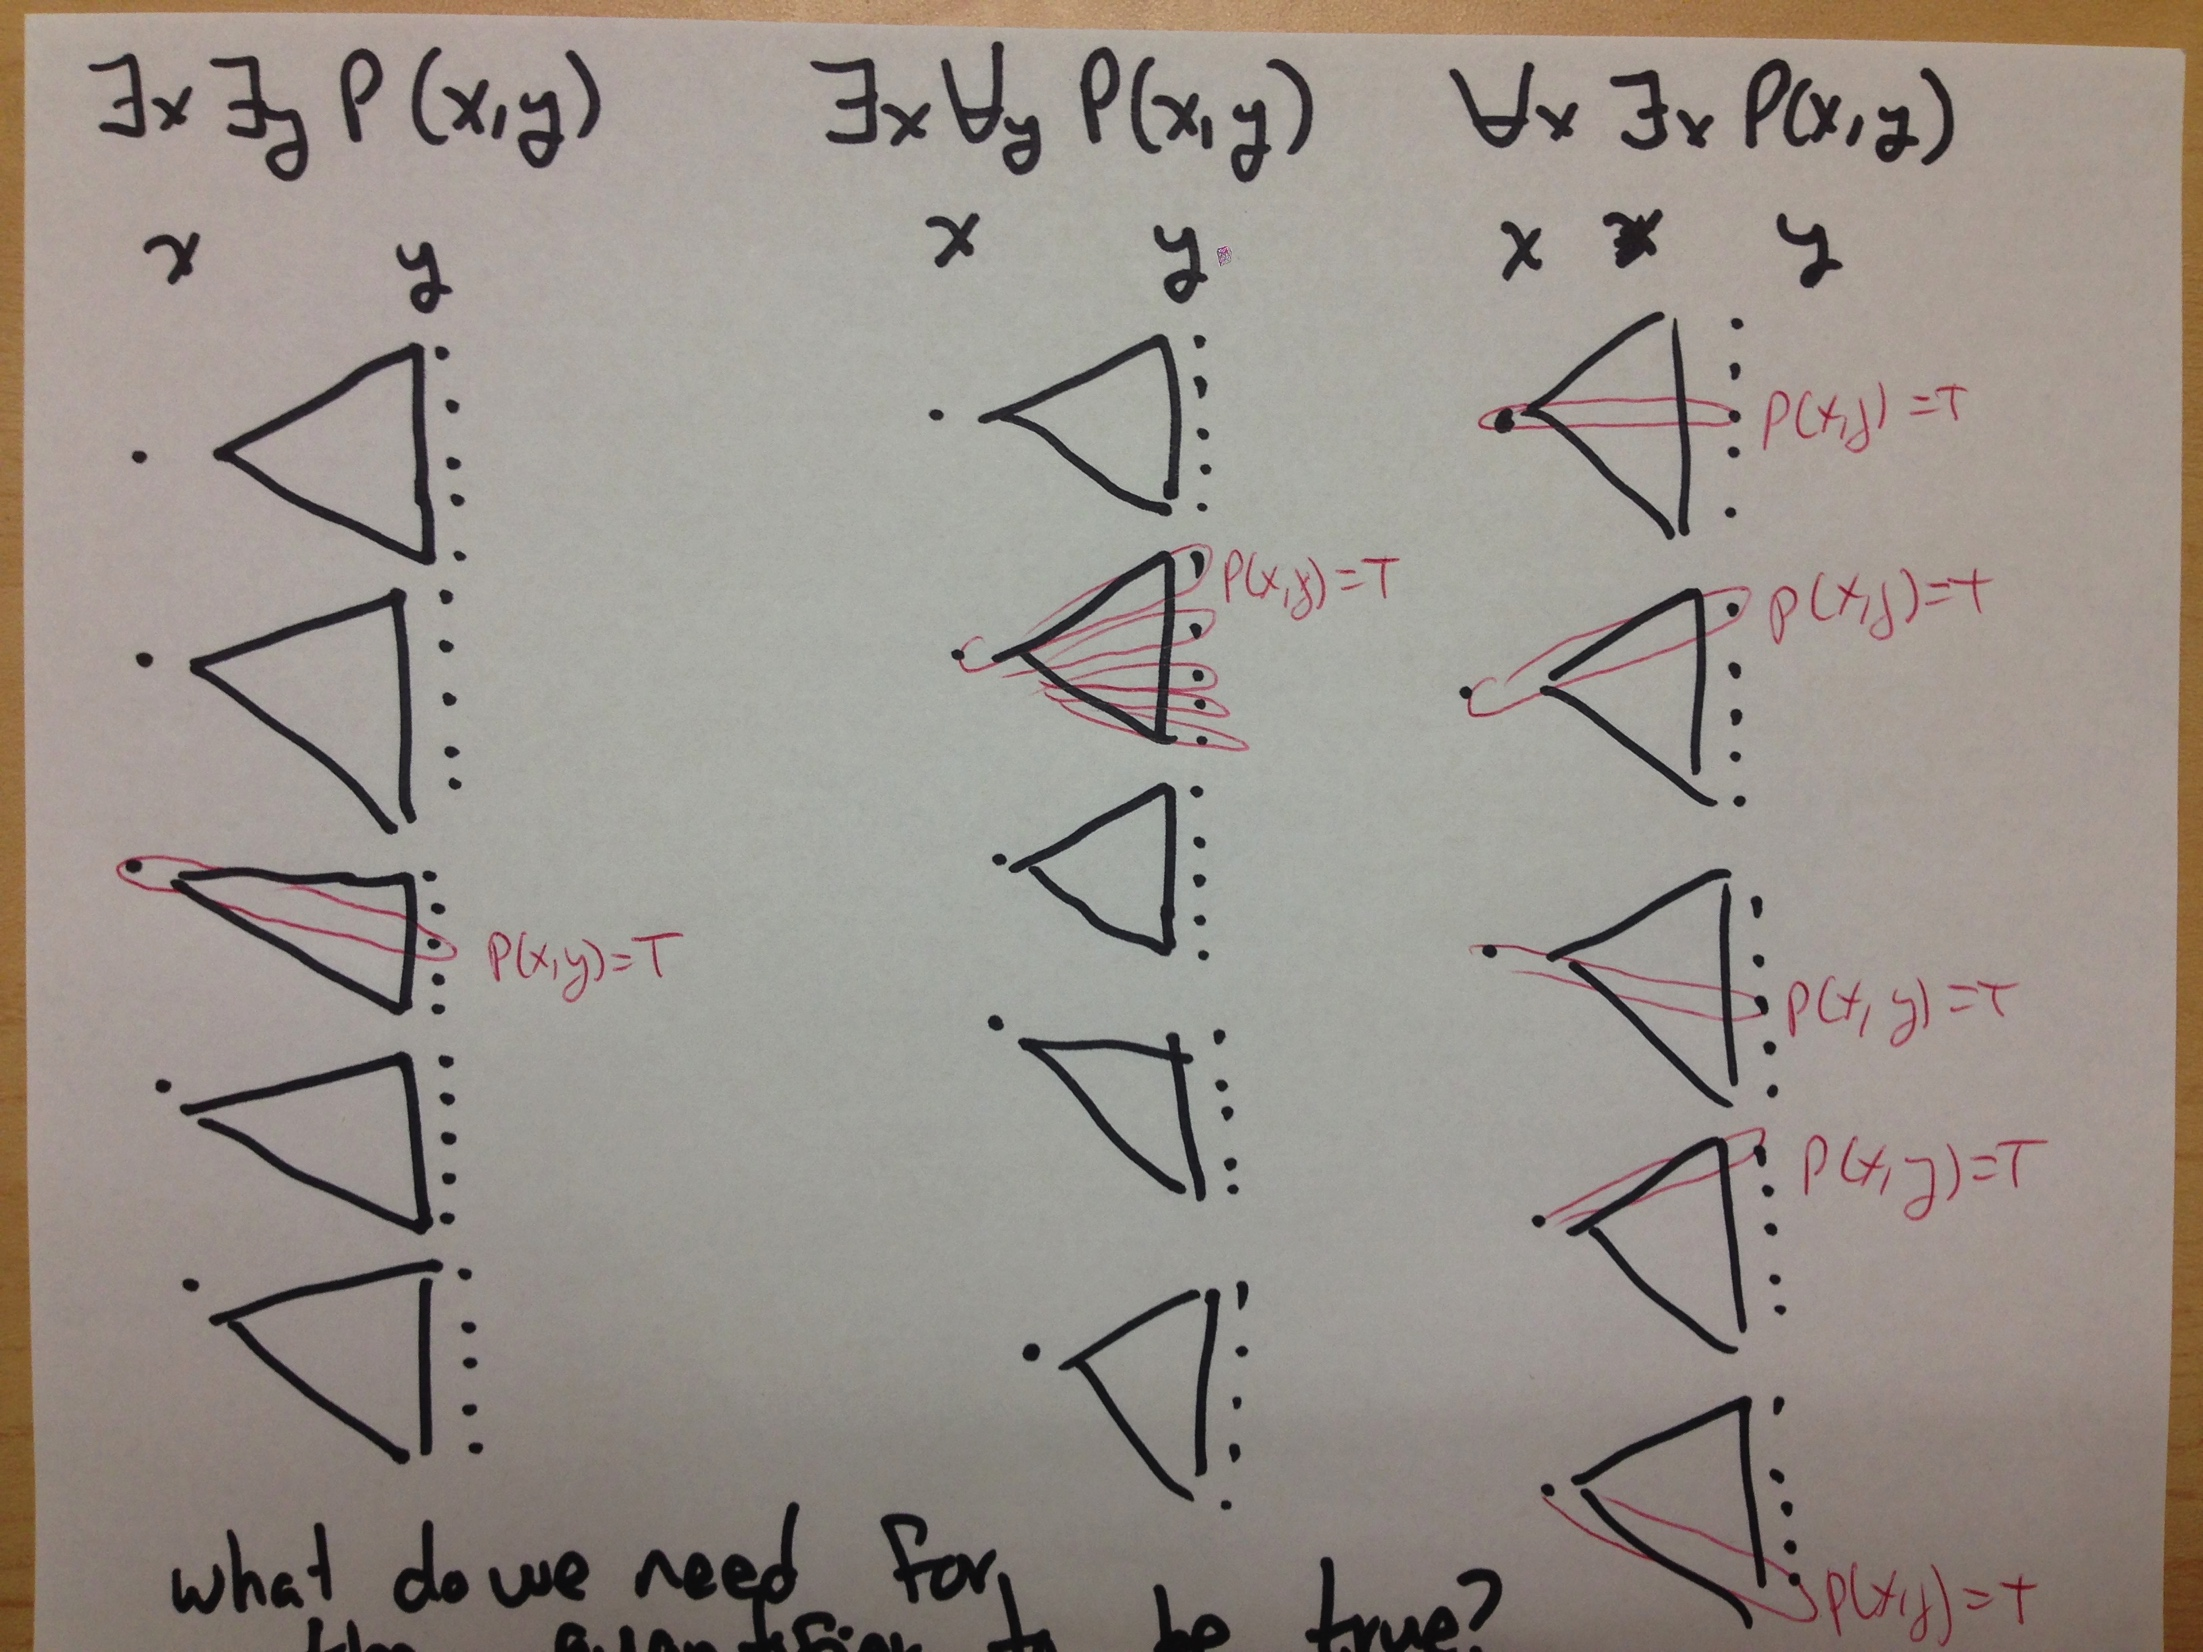 ∃x ∃y P(x,y)
∃x ∀y P(x,y)
∀x ∃x P(x,y)
x y
x y
x y
P(x,y)=T
P(x,y)=T
P(x,y)=T
P(x,y)=T
P(x,y)=T
P(x,y)=T
P(x,y)=T
what do we need for
the quantifier to be true?